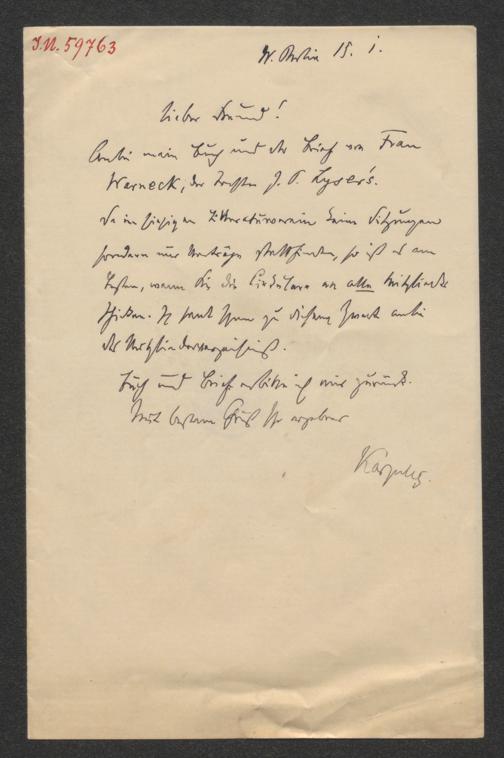 J.N. 59763
W. Berlin 15. I.
Lieber Freund!
Anbei mein Buch und der Brief von Frau
Warneck, der J. P. Lyser's.
Da im hiesigen Litteraturverein keine Sitzungen
sondern nur Vorträge stattfinden, so ist es am
besten, wenn Sie die Circulare an alle Mitglieder
schicken. Ich sende Ihnen zu diesem Zweck anbei
das Mitgliederverzeichniß.
Buch und Brief erbitte ich mir zurück.
Mit bestem Gruß Ihr ergebener
Karpeles.